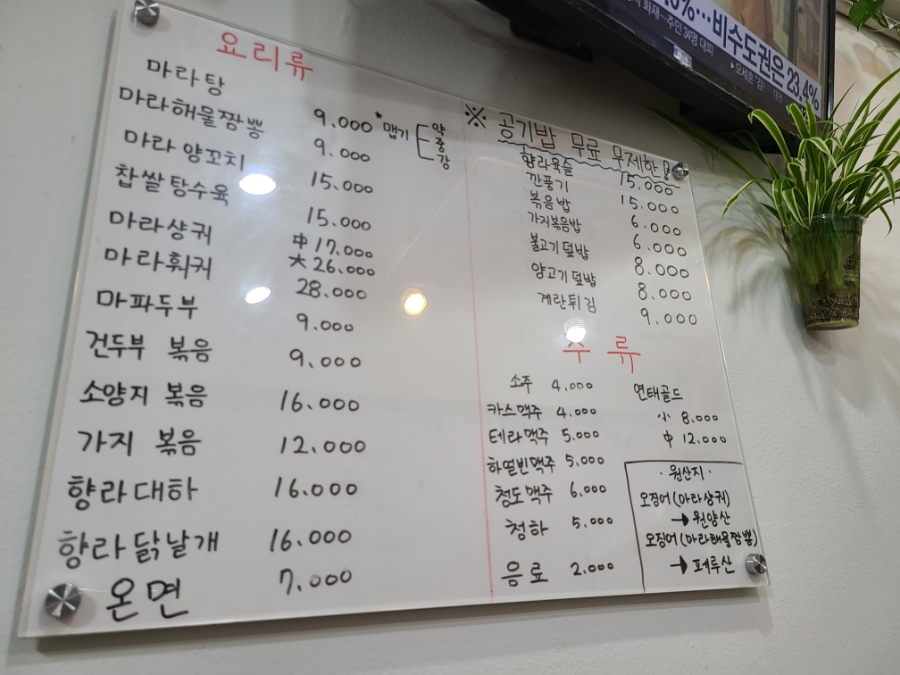 요리류
마라탕 9.000 *맵기 약 중 강
마라해물짬뽕 9.000
마라양꼬치 15.000
찹쌀탕수육 15.000
마라샹궈 中 17.000
大 26.000
마라훠궈 28.000
마파두부 9.000
건두부 볶음 9.000
소양지 볶음 16.000
가지 볶음 12.000
향라대하 16.000
향라닭날개 16.000
온면 7.000
※ 공기밥 무료 무제한!
향라육슬 15.000
깐풍기 15.000
볶음밥 6.000
가지볶음밥 6.000
불고기덮밥 8.000
양고기덮밥 8.000
계란튀김 9.000
주류
소주 4.000
카스맥주 4.000
테라맥주 5.000
하얼빈맥주 5.000
청도맥주 6.000
청하 5.000
음료 2.000
연태골드
小 8.000
中 12.000
·원산지·
오징어(마라샹궈)
→ 원양산
오징어(마라해물짬뽕)
→ 페루산
비수도권은 23.4%
화재…주민 34명 대피